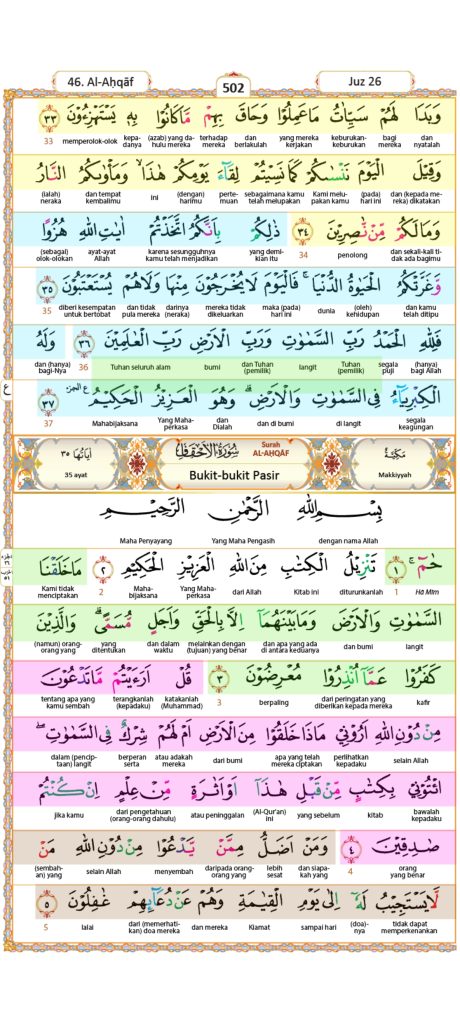 46. Al-Aḥqāf
502
Juz 26
وَبَدَا لَهُمْ سَيِّاٰتُ مَا عَمِلُوْا وَحَاقَ بِهِمْ مَّا كَانُوْا بِهٖ يَسْتَهْزِءُوْنَ ٣٣
dan nyatalah bagi mereka keburukan-keburukan yang mereka kerjakan dan berlakulah terhadap mereka (azab) yang dahulu mereka kepadanya memperolok-olok 33
وَقِيْلَ الْيَوْمَ نَنْسٰىكُمْ كَمَا نَسِيْتُمْ لِقَاۤءَ يَوْمِكُمْ هٰذَا وَمَأْوٰىكُمُ النَّارُ
dan (kepada mereka) dikatakan (pada) hari ini Kami melupakan kamu sebagaimana kamu telah melupakan pertemuan (dengan) harimu ini dan tempat kembalimu (ialah) neraka
وَمَا لَكُمْ مِّنْ نّٰصِرِيْنَ ٣٤ ذٰلِكُمْ بِاَنَّكُمُ اتَّخَذْتُمْ اٰيٰتِ اللّٰهِ هُزُوًا
dan sekali-kali tidak ada bagimu penolong 34 yang demikian itu karena sesungguhnya kamu telah menjadikan ayat-ayat Allah (sebagai) olok-olokan
وَّغَرَّتْكُمُ الْحَيٰوةُ الدُّنْيَا ۚ فَالْيَوْمَ لَا يُخْرَجُوْنَ مِنْهَا وَلَا هُمْ يُسْتَعْتَبُوْنَ ٣٥
dan kamu telah ditipu (oleh) kehidupan dunia maka (pada) hari ini mereka tidak dikeluarkan darinya (neraka) dan tidak pula mereka diberi kesempatan untuk bertobat 35
فَلِلّٰهِ الْحَمْدُ رَبِّ السَّمٰوٰتِ وَرَبِّ الْاَرْضِ رَبِّ الْعٰلَمِيْنَ ٣٦ وَلَهُ
(hanya) bagi Allah segala puji Tuhan (pemilik) langit dan Tuhan (pemilik) bumi Tuhan seluruh alam 36 dan (hanya) bagi-Nya
الْكِبْرِيَاۤءُ فِى السَّمٰوٰتِ وَالْاَرْضِ ۖ وَهُوَ الْعَزِيْزُ الْحَكِيْمُ ٣٧
segala keagungan di langit dan di bumi dan Dialah Yang Mahaperkasa Mahabijaksana 37
مَكِّيَّةٌ سُوْرَةُ الْاَحْقَافِ اٰيَاتُهَا ٣٥
Surah AL-AḤQĀF
Makkiyyah Bukit-bukit Pasir 35 ayat
بِسْمِ اللّٰهِ الرَّحْمٰنِ الرَّحِيْمِ
dengan nama Allah Yang Maha Pengasih Maha Penyayang
حٰمۤ ۚ ١ تَنْزِيْلُ الْكِتٰبِ مِنَ اللّٰهِ الْعَزِيْزِ الْحَكِيْمِ ٢ مَا خَلَقْنَا
Hā Mīm 1 diturunkanlah Kitab ini dari Allah Yang Mahaperkasa Mahabijaksana 2 Kami tidak menciptakan
السَّمٰوٰتِ وَالْاَرْضَ وَمَا بَيْنَهُمَآ اِلَّا بِالْحَقِّ وَاَجَلٍ مُّسَمًّى ۗ وَالَّذِيْنَ
langit dan bumi dan apa yang ada di antara keduanya melainkan dengan (tujuan) yang benar dan dalam waktu yang ditentukan (namun) orang-orang yang
كَفَرُوْا عَمَّآ اُنْذِرُوْا مُعْرِضُوْنَ ٣ قُلْ اَرَءَيْتُمْ مَّا تَدْعُوْنَ
kafir dari peringatan yang diberikan kepada mereka berpaling 3 katakanlah (Muhammad) terangkanlah (kepadaku) tentang apa yang kamu sembah
مِنْ دُوْنِ اللّٰهِ اَرُوْنِيْ مَاذَا خَلَقُوْا مِنَ الْاَرْضِ اَمْ لَهُمْ شِرْكٌ فِى السَّمٰوٰتِ ۖ
selain Allah perlihatkan kepadaku apa yang telah mereka ciptakan dari bumi atau adakah mereka berperan serta dalam (penciptaan) langit
ائْتُوْنِيْ بِكِتٰبٍ مِّنْ قَبْلِ هٰذَآ اَوْ اَثٰرَةٍ مِّنْ عِلْمٍ اِنْ كُنْتُمْ
bawalah kepadaku kitab yang sebelum (Al-Qur'an) ini atau peninggalan dari pengetahuan (orang-orang dahulu) jika kamu
صٰدِقِيْنَ ٤ وَمَنْ اَضَلُّ مِمَّنْ يَّدْعُوْا مِنْ دُوْنِ اللّٰهِ مَنْ
orang yang benar 4 dan siapakah yang lebih sesat daripada orang-orang yang menyembah selain Allah (sembahan) yang
لَّا يَسْتَجِيْبُ لَهٗٓ اِلٰى يَوْمِ الْقِيٰمَةِ وَهُمْ عَنْ دُعَاۤىِٕهِمْ غٰفِلُوْنَ ٥
tidak dapat memperkenankan (doa)-nya sampai hari Kiamat dan mereka dari (memerhatikan) doa mereka lalai 5